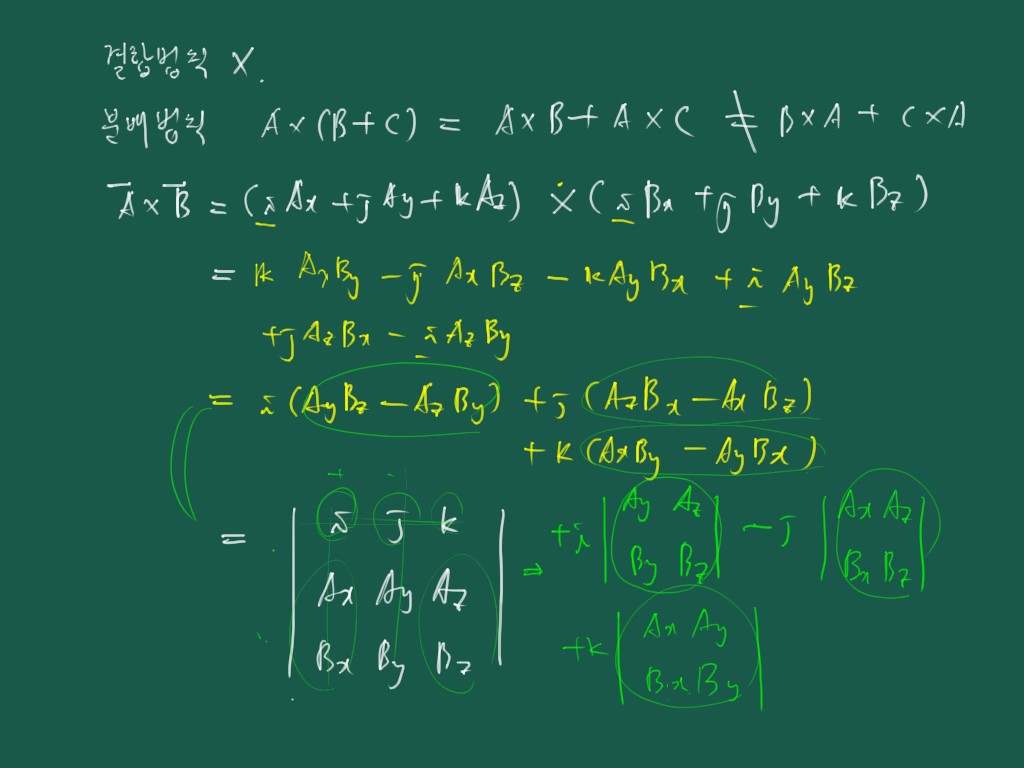 결합법칙 X.
분배법칙 A × (B + C) = A × B + A × C ≠ B × A + C × A
A̅ × B̅ = (i Ax + j Ay + k Az) × (i Bx + j By + k Bz)
= k AxBy - j Ax Bz - k Ay Bx + i Ay Bz
+ j Az Bx - i Az By
= i (Ay Bz - Az By) + j (Az Bx - Ax Bz)
+ k (Ax By - Ay Bx)
+ -
= | i j k | ⇒ + i | Ay Az | - j | Ax Az |
| Ax Ay Az | | By Bz | | Bx Bz |
| Bx By Bz | + k | Ax Ay |
| Bx By |